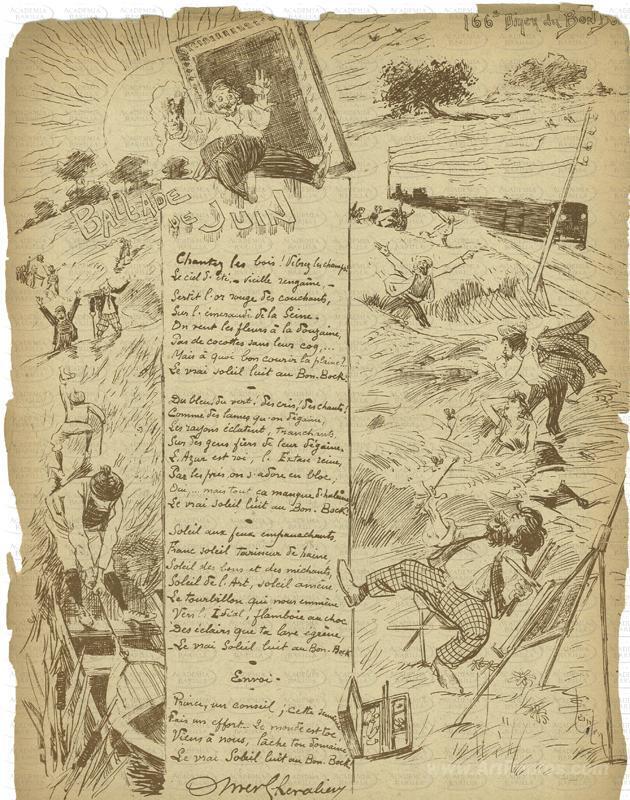 166e Diner du Bon Bo
BALLADE
DE JUIN
Chantez les bois! Vibrez les champs!
Le ciel d'été, – vieille rengaine, –
Sertit l'or rouge des couchants,
Sur l'émeraude de la Seine.
On vend les fleurs à la douzaine,
Pas de cocottes sans leur coq...
Mais à quoi bon courir la plaine?
Le vrai soleil luit au Bon-Bock.
Du bleu, du vert! des cris, des chants!
Comme des lames qu'on dégaine,
Les rayons éclatent, tranchants,
Sur des gens fiers de leur dégaine.
L'Azur est roi, l'Extase reine,
Par les prés on s'adore en bloc,
Oui,... mais tout ça manque d'haleine
Le vrai soleil luit au Bon-Bock.
Soleil aux feux empanachants,
Franc soleil tarisseur de haine,
Soleil des bons et des méchants,
Soleil de l'Art, soleil amène
Le tourbillon qui nous emmène
Vers l'Idéal, flamboie au choc
Des éclairs que ta lave égrène,
Le vrai Soleil luit au Bon-Bock
Envoi -
Prince, un conseil; cette
Fais un effort. Le monde est toc
Viens à nous, lâche ton domaine
Le vrai Soleil luit au Bon-Bock
Chevalier